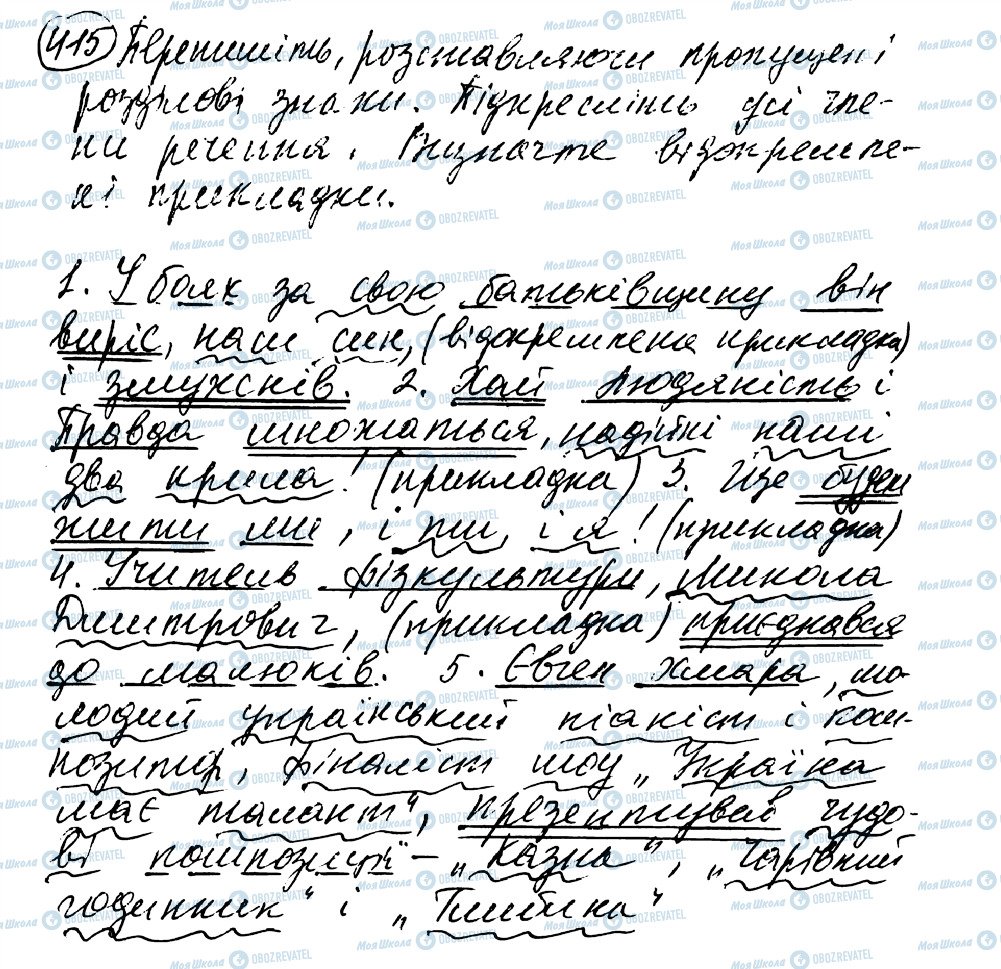 415 Перепишіть, розставляючи пропущені
розділові знаки. Підкресліть усі чле-
ни речення. Визначте відокремле-
ні прикладки.
1. У боях за свою батьківщину він
виріс, наш син, (відокремлена прикладка)
і змужнів. 2. Хай людяність і
Правда множаться, надійні наші
два крила! (прикладка) 3. Ще будем
жити ми, і ти, і я! (прикладка)
4. Учитель фізкультури, Микола
Дмитрович, (прикладка) приєднався
до малюків. 5. Євген Хмара, мо-
лодий український піаніст і ком-
позитор, фіналіст шоу „Україна
має талант", презентував чудо-
ві композиції – „Казка", „Чарівний
годинник" і „Тишина"